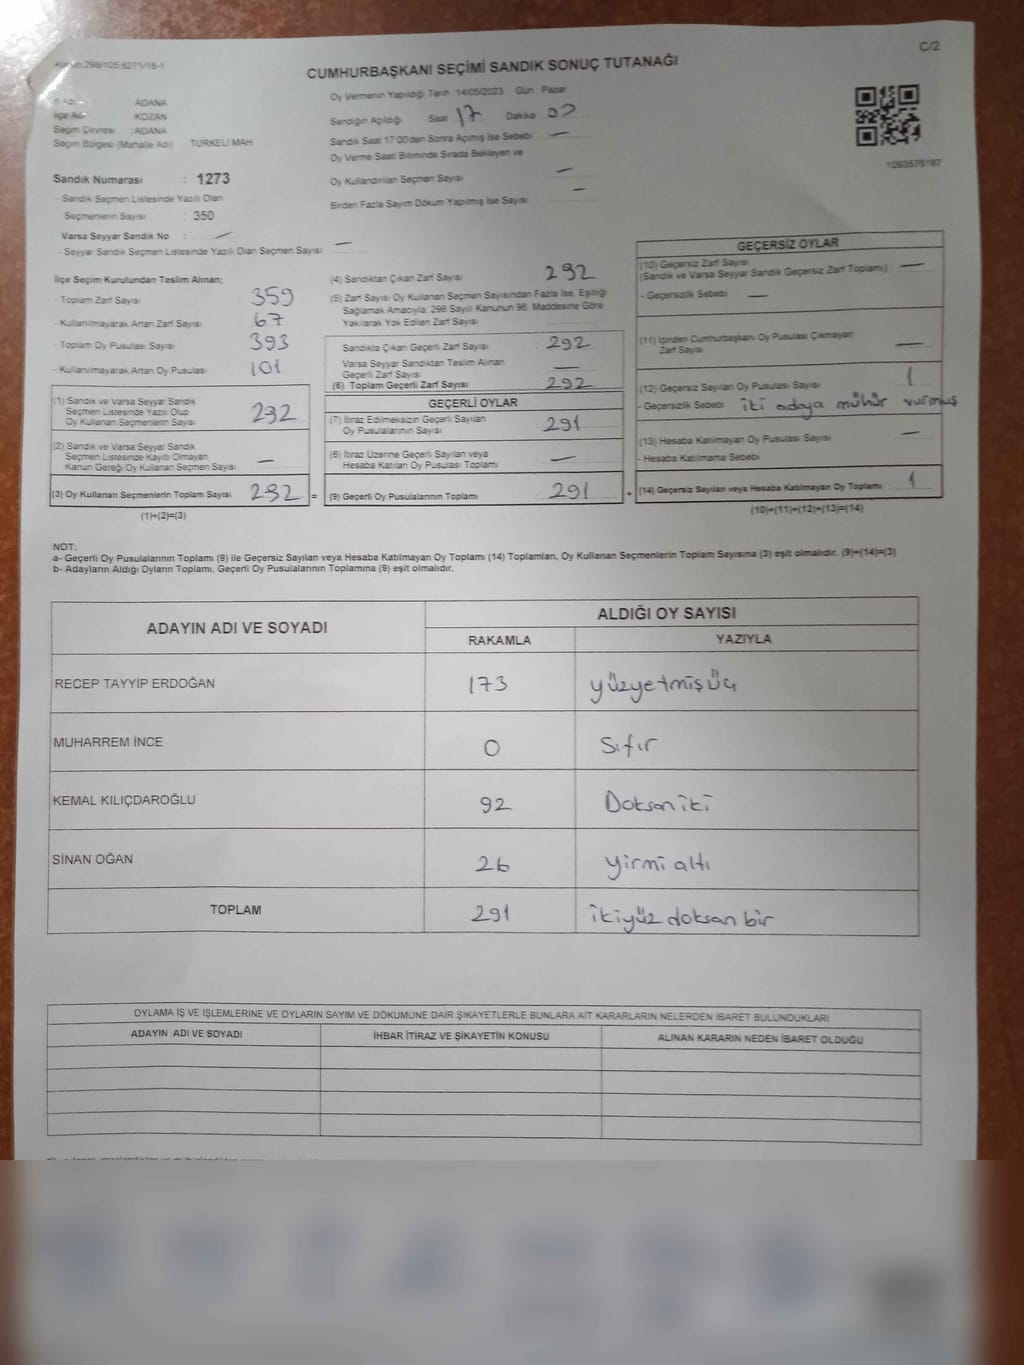 C/2
Kanun:298/105;6271/16-1
CUMHURBAŞKANI SEÇİMİ SANDIK SONUÇ TUTANAĞI
İl Adı : ADANA
İlçe Adı : KOZAN
Seçim Çevresi : ADANA
Seçim Bölgesi (Mahalle Adı) TÜRKELİ MAH
Sandık Numarası : 1273
- Sandık Seçmen Listesinde Yazılı Olan
Seçmenlerin Sayısı : 350
Varsa Seyyar Sandık No : —
- Seyyar Sandık Seçmen Listesinde Yazılı Olan Seçmen Sayısı —
Oy Vermenin Yapıldığı Tarih :14/05/2023 Gün Pazar
Sandığın Açıldığı Saat 17 Dakika
Sandık Saat 17:00'den Sonra Açılmış İse Sebebi —
Oy Verme Saati Bitiminde Sırada Bekleyen ve
Oy Kullandırılan Seçmen Sayısı —
Birden Fazla Sayım Döküm Yapılmış İse Sayısı —
1093576187
İlçe Seçim Kurulundan Teslim Alınan;
- Toplam Zarf Sayısı 359
- Kullanılmayarak Artan Zarf Sayısı 67
- Toplam Oy Pusulası Sayısı 393
- Kullanılmayarak Artan Oy Pusulası 101
(1) Sandık ve Varsa Seyyar Sandık
Seçmen Listesinde Yazılı Olup
Oy Kullanan Seçmenlerin Sayısı 292
(2) Sandık ve Varsa Seyyar Sandık
Seçmen Listesinde Kayıtlı Olmayan
Kanun Gereği Oy Kullanan Seçmen Sayısı —
(3) Oy Kullanan Seçmenlerin Toplam Sayısı 292 =
(1)+(2)=(3)
(4) Sandıktan Çıkan Zarf Sayısı 292
(5) Zarf Sayısı Oy Kullanan Seçmen Sayısından Fazla İse, Eşitliği
Sağlamak Amacıyla, 298 Sayılı Kanunun 98. Maddesine Göre
Yakılarak Yok Edilen Zarf Sayısı
Sandıkta Çıkan Geçerli Zarf Sayısı 292
Varsa Seyyar Sandıktan Teslim Alınan
Geçerli Zarf Sayısı —
(6) Toplam Geçerli Zarf Sayısı 292
GEÇERLİ OYLAR
(7) İtiraz Edilmeksizin Geçerli Sayılan
Oy Pusulalarının Sayısı 291
(8) İtiraz Üzerine Geçerli Sayılan veya
Hesaba Katılan Oy Pusulası Toplamı —
(9) Geçerli Oy Pusulalarının Toplamı : 291 +
GEÇERSİZ OYLAR
(10) Geçersiz Zarf Sayısı
(Sandık ve Varsa Seyyar Sandık Geçersiz Zarf Toplamı) —
- Geçersizlik Sebebi —
(11) İçinden Cumhurbaşkanı Oy Pusulası Çıkmayan
Zarf Sayısı —
(12) Geçersiz Sayılan Oy Pusulası Sayısı 1
- Geçersizlik Sebebi iki adaya mühür vurmuş
(13) Hesaba Katılmayan Oy Pusulası Sayısı —
- Hesaba Katılmama Sebebi
(14) Geçersiz Sayılan veya Hesaba Katılmayan Oy Toplamı : 1
(10)+(11)+(12)+(13)=(14)
NOT:
a- Geçerli Oy Pusulalarının Toplamı (9) ile Geçersiz Sayılan veya Hesaba Katılmayan Oy Toplamı (14) Toplamları, Oy Kullanan Seçmenlerin Toplam Sayısına (3) eşit olmalıdır. (9)+(14)=(3)
b- Adayların Aldığı Oyların Toplamı, Geçerli Oy Pusulalarının Toplamına (9) eşit olmalıdır.
ADAYIN ADI VE SOYADI ALDIĞI OY SAYISI
RAKAMLA YAZIYLA
RECEP TAYYİP ERDOĞAN 173 yüzyetmişüç
MUHARREM İNCE 0 Sıfır
KEMAL KILIÇDAROĞLU 92 Doksan iki
SİNAN OĞAN 26 yirmi altı
TOPLAM 291 ikiyüz doksan bir
OYLAMA İŞ VE İŞLEMLERİNE VE OYLARIN SAYIM VE DÖKÜMÜNE DAİR ŞİKAYETLERLE BUNLARA AİT KARARLARIN NELERDEN İBARET BULUNDUKLARI
ADAYIN ADI VE SOYADI İHBAR İTİRAZ VE ŞİKAYETİN KONUSU ALINAN KARARIN NEDEN İBARET OLDUĞU